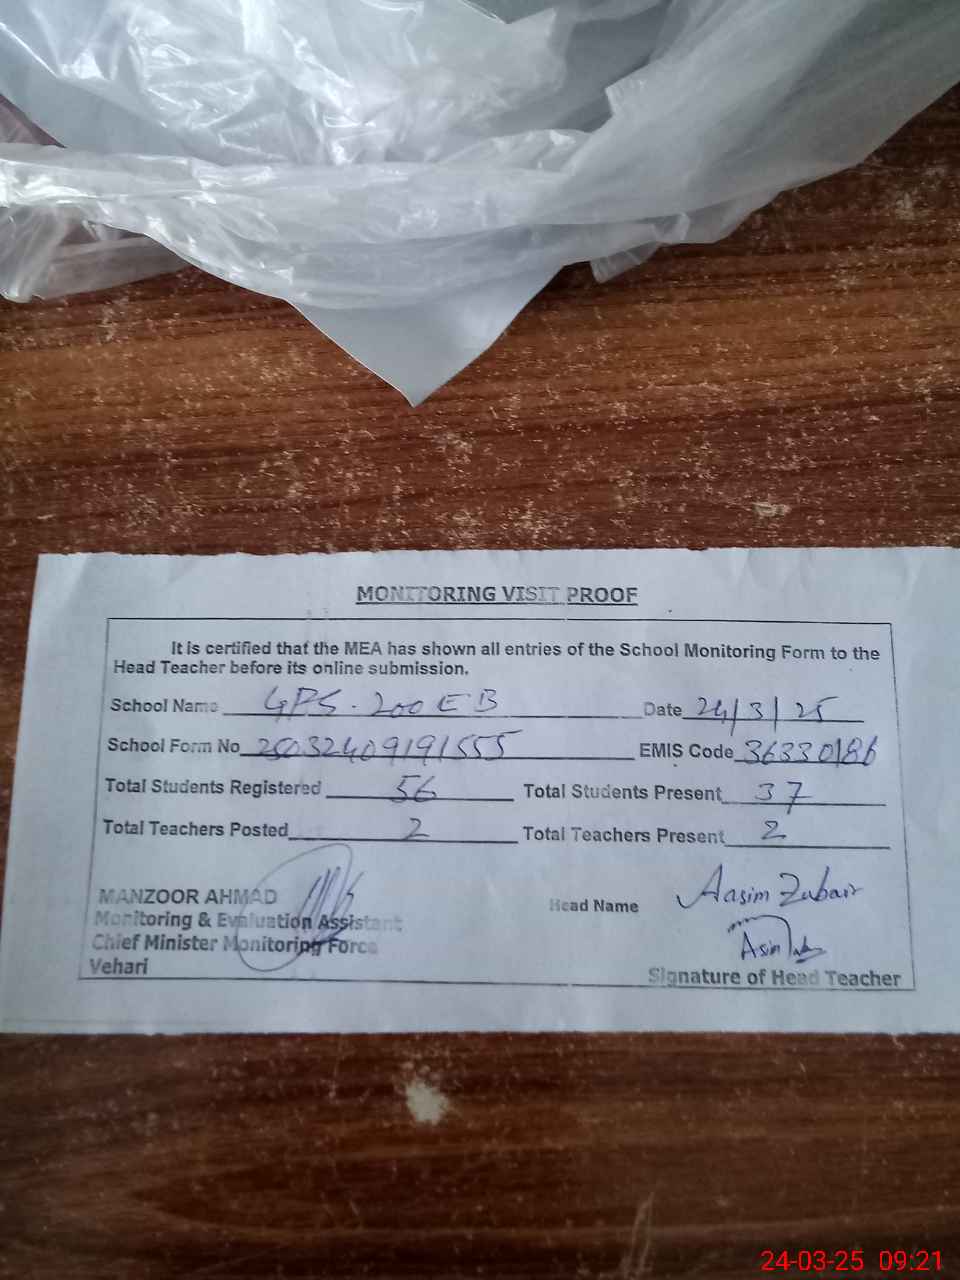 MONITORING VISIT PROOF
It is certified that the MEA has shown all entries of the School Monitoring Form to the
Head Teacher before its online submission.
School Name GPS. 200 EB Date 24/3/25
School Form No 25032409191555 EMIS Code 36330186
Total Students Registered 56 Total Students Present 37
Total Teachers Posted 2 Total Teachers Present 2
MANZOOR AHMAD
Monitoring & Evaluation Assistant
Chief Minister Monitoring Force
Vehari
Head Name Aasim Zubair
Signature of Head Teacher
24-03-25 09:21